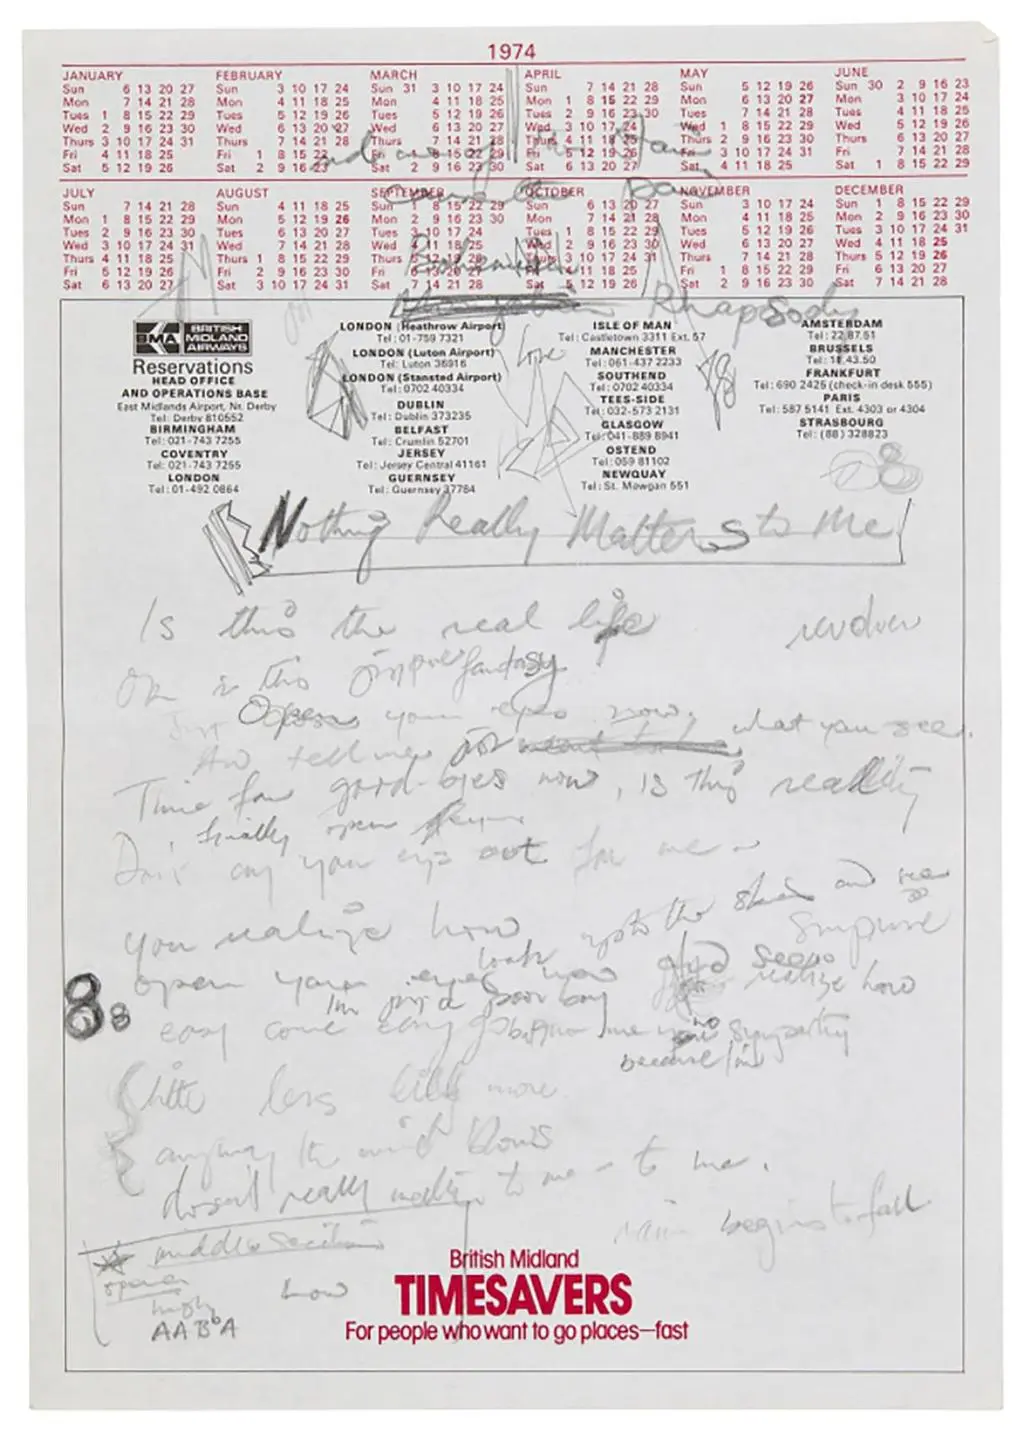 1974
JANUARY
Sun 6 13 20 27
Mon 7 14 21 28
Tues 1 8 15 22 29
Wed 2 9 16 23 30
Thurs 3 10 17 24 31
Fri 4 11 18 25
Sat 5 12 19 26
FEBRUARY
Sun 3 10 17 24
Mon 4 11 18 25
Tues 5 12 19 26
Wed 6 13 20 27
Thurs 7 14 21 28
Fri 1 8 15 22
Sat 2 9 16 23
MARCH
Sun 31 3 10 17 24
Mon 4 11 18 25
Tues 5 12 19 26
Wed 6 13 20 27
Thurs 7 14 21 28
Fri 1 8 15 22 29
Sat 2 9 16 23 30
APRIL
Sun 7 14 21 28
Mon 1 8 15 22 29
Tues 2 9 16 23 30
Wed 3 10 17 24
Thurs 4 11 18 25
Fri 5 12 19 26
Sat 6 13 20 27
MAY
Sun 5 12 19 26
Mon 6 13 20 27
Tues 7 14 21 28
Wed 1 8 15 22 29
Thurs 2 9 16 23 30
Fri 3 10 17 24 31
Sat 4 11 18 25
JUNE
Sun 30 2 9 16 23
Mon 3 10 17 24
Tues 4 11 18 25
Wed 5 12 19 26
Thurs 6 13 20 27
Fri 7 14 21 28
Sat 1 8 15 22 29
JULY
Sun 7 14 21 28
Mon 1 8 15 22 29
Tues 2 9 16 23 30
Wed 3 10 17 24 31
Thurs 4 11 18 25
Fri 5 12 19 26
Sat 6 13 20 27
AUGUST
Sun 4 11 18 25
Mon 5 12 19 26
Tues 6 13 20 27
Wed 7 14 21 28
Thurs 1 8 15 22 29
Fri 2 9 16 23 30
Sat 3 10 17 24 31
SEPTEMBER
Sun 1 8 15 22 29
Mon 2 9 16 23 30
Tues 3 10 17 24
Wed 4 11 18 25
Thurs 5 12 19 26
Fri 6 13 20 27
Sat 7 14 21 28
OCTOBER
Sun 6 13 20 27
Mon 7 14 21 28
Tues 1 8 15 22 29
Wed 2 9 16 23 30
Thurs 3 10 17 24 31
Fri 4 11 18 25
Sat 5 12 19 26
NOVEMBER
Sun 3 10 17 24
Mon 4 11 18 25
Tues 5 12 19 26
Wed 6 13 20 27
Thurs 7 14 21 28
Fri 1 8 15 22 29
Sat 2 9 16 23 30
DECEMBER
Sun 1 8 15 22 29
Mon 2 9 16 23 30
Tues 3 10 17 24 31
Wed 4 11 18 25
Thurs 5 12 19 26
Fri 6 13 20 27
Sat 7 14 21 28
Bohemian
Rhapsody
BMA BRITISH MIDLAND AIRWAYS
Reservations
HEAD OFFICE
AND OPERATIONS BASE
East Midlands Airport, Nr. Derby
Tel: Derby 810552
BIRMINGHAM
Tel: 021-743 7255
COVENTRY
Tel: 021-743 7255
LONDON
Tel: 01-492 0864
LONDON (Heathrow Airport)
Tel: 01-759 7321
LONDON (Luton Airport)
Tel: Luton 36916
LONDON (Stansted Airport)
Tel: 0702 40334
DUBLIN
Tel: Dublin 373235
BELFAST
Tel: Crumlin 52701
JERSEY
Tel: Jersey Central 41161
GUERNSEY
Tel: Guernsey 37784
Love
ISLE OF MAN
Tel: Castletown 3311 Ext. 57
MANCHESTER
Tel: 061-437 2233
SOUTHEND
Tel: 0702 40334
TEES-SIDE
Tel: 032-573 2131
GLASGOW
Tel: 041-889 8941
OSTEND
Tel: 059 81102
NEWQUAY
Tel: St. Mawgan 551
AMSTERDAM
Tel: 22.87.51
BRUSSELS
Tel: 18.43.50
FRANKFURT
Tel: 690 2425 (check-in desk 555)
PARIS
Tel: 587 5141 Ext. 4303 or 4304
STRASBOURG
Tel: (88) 328823
Nothing Really Matters to Me
Is this the real life
or is this fantasy
Just Open your eyes now,
And tell me what you see.
Time for good-byes now, is this reality
finally open
Don't cry your eyes out for me
you realize how up to the skies and see
surprise
open your eyes look now realize how
I'm just a poor boy
easy come easy go no sympathy
because I'm
little less little more
anyway the wind blows
doesn't really matter to me - to me.
rain begins to fall
middle section
opera
how
AABbA
British Midland
TIMESAVERS
For people who want to go places—fast